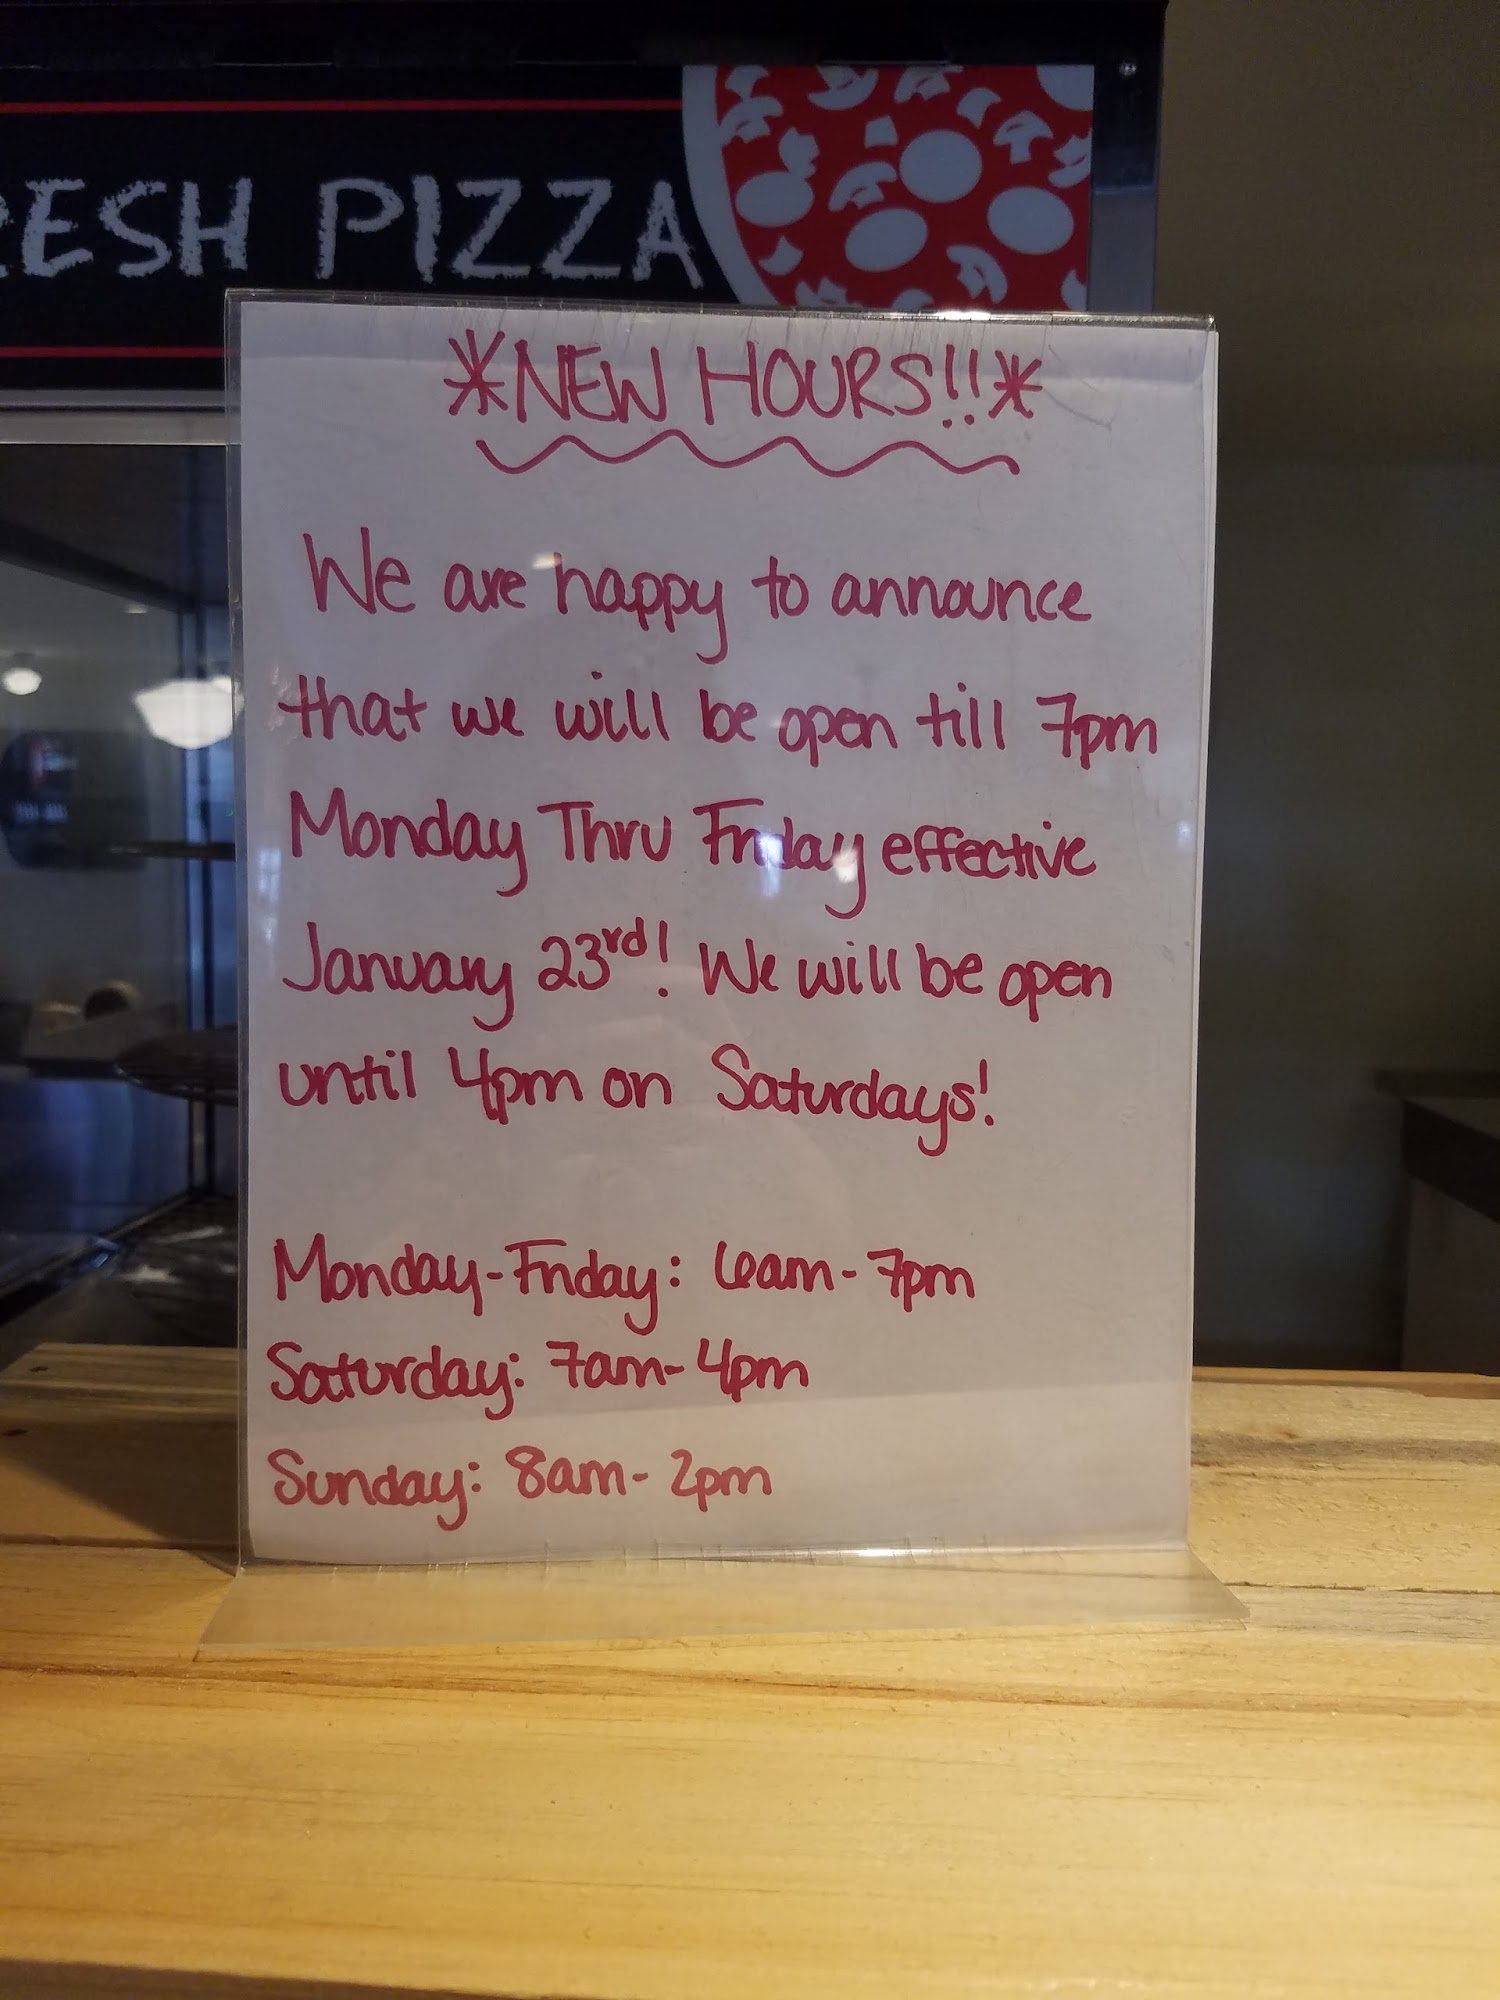 RESH PIZZA
*NEW HOURS!!*
We are happy to announce
that we will be open till 7pm
Monday Thru Friday effective
January 23rd! We will be open
until 4pm on Saturdays!
Monday-Friday: 6am-7pm
Saturday: 7am-4pm
Sunday: 8am-2pm